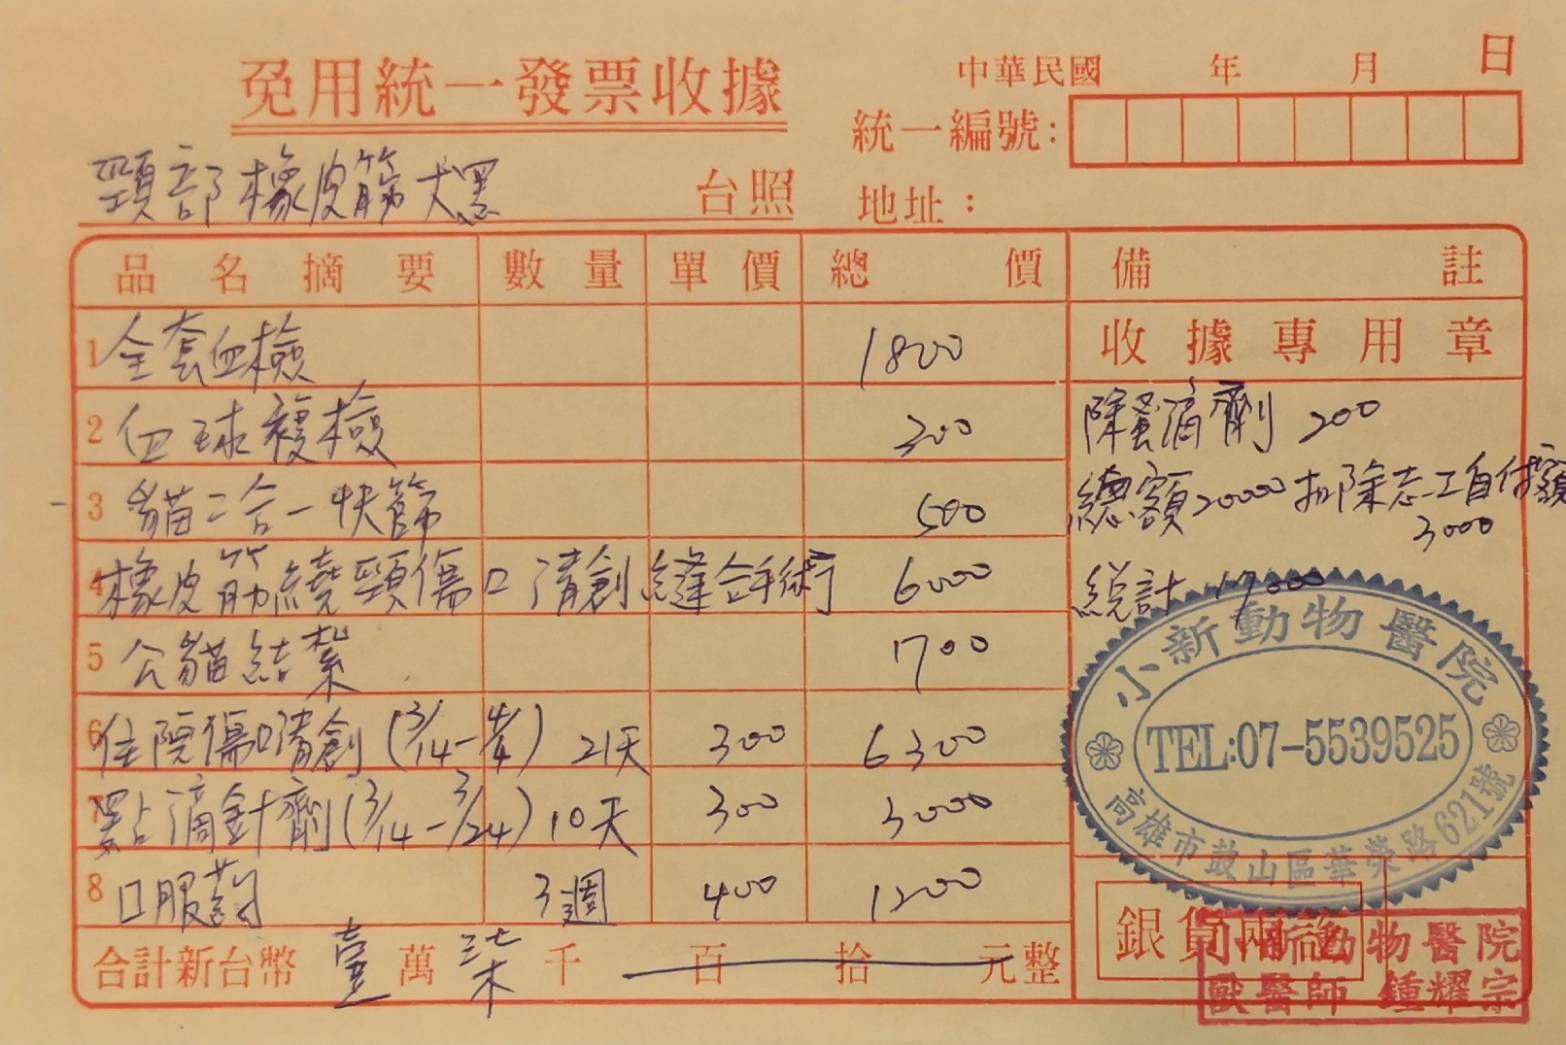 免用統一發票收據
中華民國 年 月 日
統一編號:
頸部橡皮筋大黑 台照
地址:
品名摘要 數量 單價 總價 備註
收據專用章
1 全套血檢 1800
2 血球複檢 300
3 貓二合一快篩 500
4 橡皮筋繞頸傷口清創縫合手術 6000
5 公貓結紮 1700
6 住院傷口清創 (3/14-4/4) 21天 300 6300
7 點滴針劑 (3/14-3/24) 10天 300 3000
8 口服葯 3週 400 1200
除蚤滴劑 200
總額20000扣除志工自付額
3000
總計 17000
小新動物醫院
TEL:07-5539525
高雄市鼓山區華榮路621號
合計新台幣 壹 萬 柒 千 百 拾 元整
銀貨兩訖
小新動物醫院
獸醫師 鍾耀宗